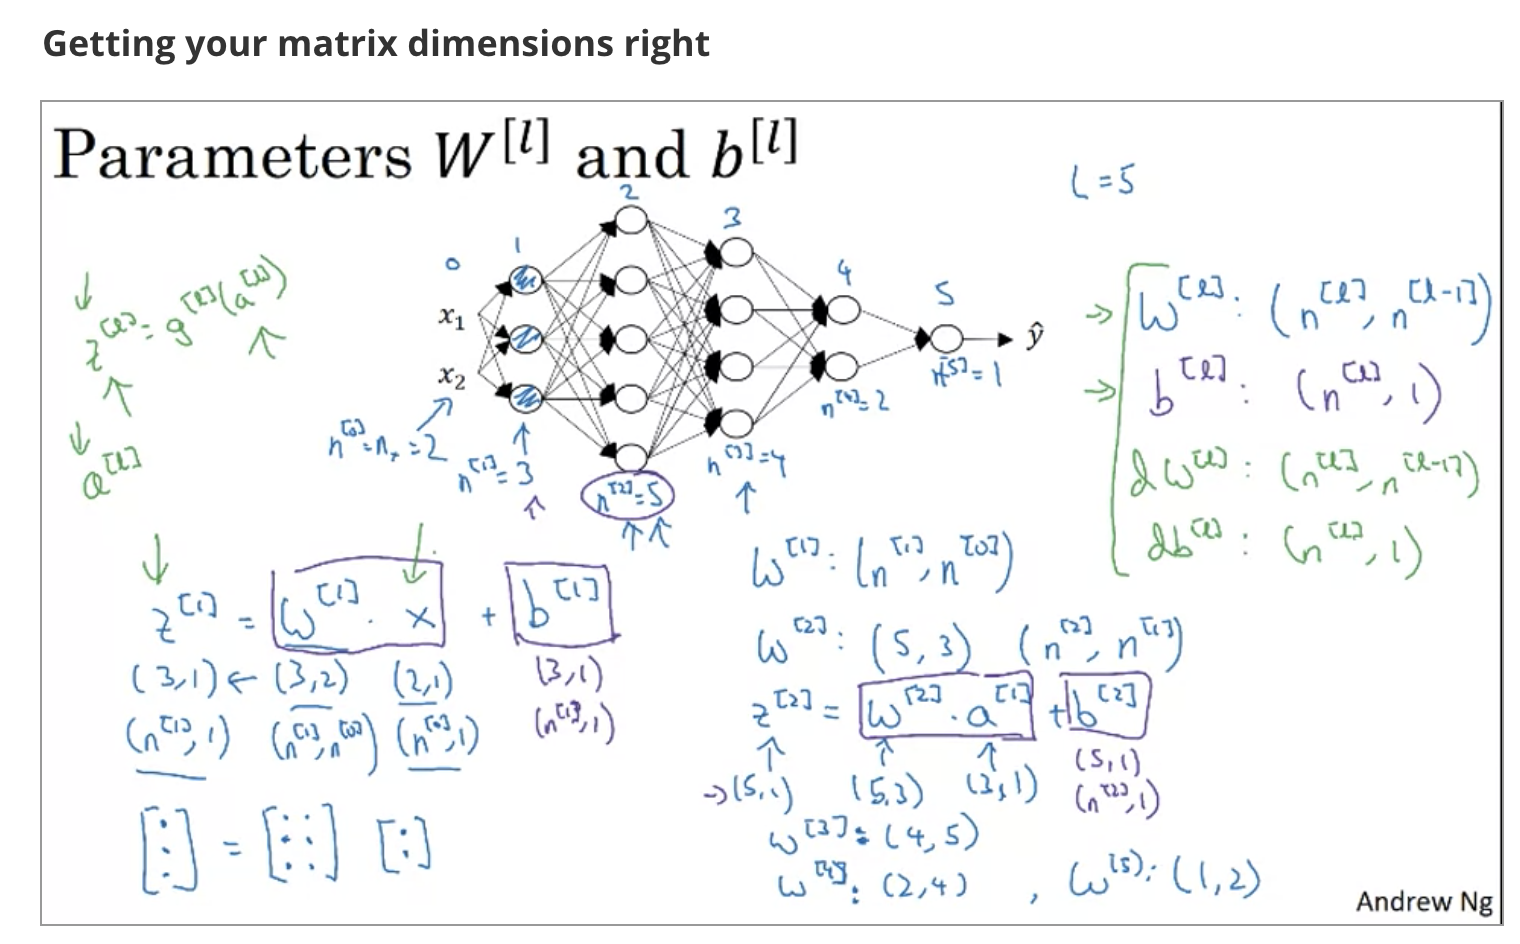 Getting your matrix dimensions right
Parameters W^[l] and b^[l]
L = 5
0 1 2 3 4 5
x₁
x₂
ŷ
z^[l] = g^[l](a^[l])
a^[l]
n^[0] = nₓ = 2
n^[1] = 3
n^[2] = 5
n^[3] = 4
n^[4] = 2
n^[5] = 1
→ W^[l] : (n^[l], n^[l-1])
→ b^[l] : (n^[l], 1)
dW^[l] : (n^[l], n^[l-1])
db^[l] : (n^[l], 1)
z^[1] = W^[1] . x + b^[1]
(3,1) ← (3,2) (2,1) (3,1)
(n^[1], 1) (n^[1], n^[0]) (n^[0], 1) (n^[1], 1)
[ ⋮ ] = [ : : : ] [ : ]
W^[1] : (n^[1], n^[0])
W^[2] : (5, 3) (n^[2], n^[1])
z^[2] = W^[2] . a^[1] + b^[2]
→ (5,1) (5,3) (3,1) (5,1)
(n^[2], 1)
W^[3] : (4, 5)
W^[4] : (2,4) , W^[5] : (1,2)
Andrew Ng